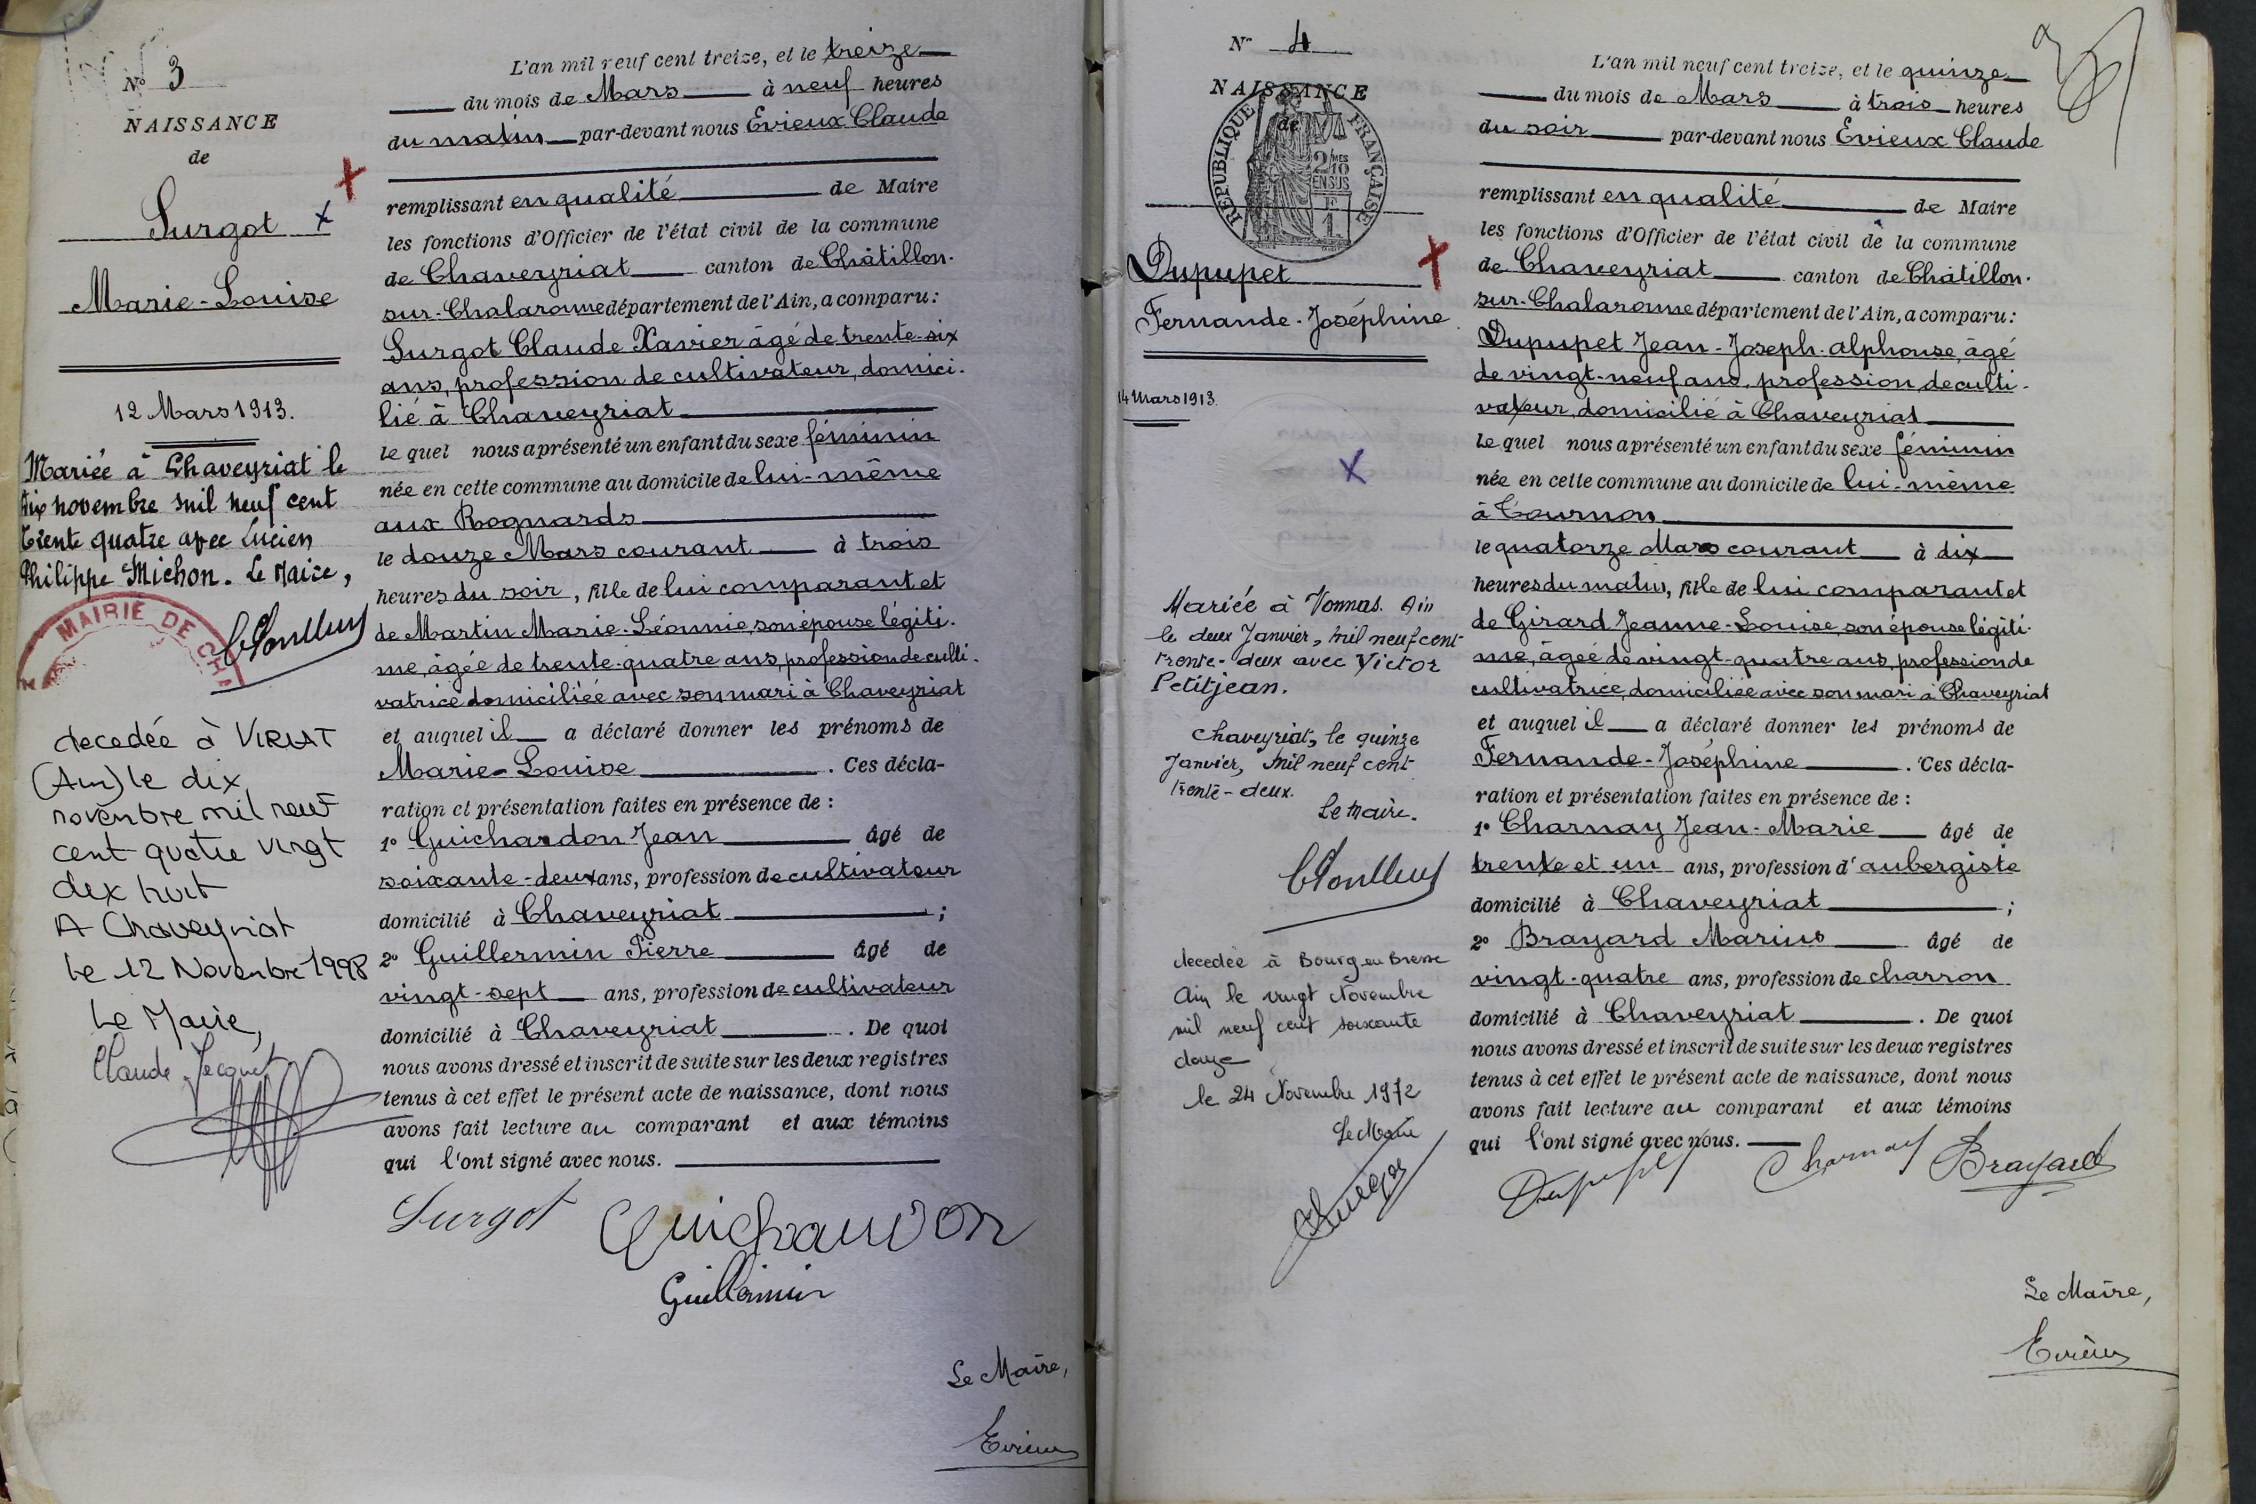 N° 3
NAISSANCE
de
Surgot
Marie-Louise
12 Mars 1913.
Mariée à Chaveyriat le
dix novembre mil neuf cent
trente quatre avec Lucien
Philippe Michon. Le Maire,
MAIRIE DE CHA
decedée à VIRIAT
(Ain) le dix
novembre mil neuf
cent quatre vingt
dix huit
A Chaveyriat
le 12 Novembre 1998
Le Maire,
Claude Jacquet
L'an mil neuf cent treize, et le treize
du mois de Mars à neuf heures
du matin par-devant nous Evieux Claude
remplissant en qualité de Maire
les fonctions d'Officier de l'état civil de la commune
de Chaveyriat canton de Châtillon-
sur-Chalaronne département de l'Ain, a comparu :
Surgot Claude Xavier âgé de trente-six
ans, profession de cultivateur, domici-
lié à Chaveyriat
lequel nous a présenté un enfant du sexe féminin
née en cette commune au domicile de lui-même
aux Rognards
le douze Mars courant à trois
heures du soir, fille de lui comparant et
de Martin Marie-Léonnie, son épouse légiti-
me, âgée de trente-quatre ans, profession de culti-
vatrice domiciliée avec son mari à Chaveyriat
et auquel il a déclaré donner les prénoms de
Marie-Louise . Ces décla-
ration et présentation faites en présence de :
1° Guichardon Jean âgé de
soixante-deux ans, profession de cultivateur
domicilié à Chaveyriat ;
2° Guillermin Pierre âgé de
vingt-sept ans, profession de cultivateur
domicilié à Chaveyriat . De quoi
nous avons dressé et inscrit de suite sur les deux registres
tenus à cet effet le présent acte de naissance, dont nous
avons fait lecture au comparant et aux témoins
qui l'ont signé avec nous.
Surgot Guichardon
Guillermin
Le Maire,
Evieux
N° 4
NAISSANCE
de
RÉPUBLIQUE FRANÇAISE
2/10MES
EN SUS
F
1
Dupupet
Fernande-Joséphine
14 Mars 1913.
Mariée à Vonnas. Ain
le deux Janvier, mil neuf cent
trente-deux avec Victor
Petitjean.
Chaveyriat, le quinze
Janvier, mil neuf cent
trente-deux.
Le Maire.
decedée à Bourg en Bresse
Ain le vingt Novembre
mil neuf cent soixante
douze
le 24 Novembre 1972
Le Maire
L'an mil neuf cent treize, et le quinze
du mois de Mars à trois heures
du soir par-devant nous Evieux Claude
remplissant en qualité de Maire
les fonctions d'Officier de l'état civil de la commune
de Chaveyriat canton de Châtillon-
sur-Chalaronne département de l'Ain, a comparu :
Dupupet Jean-Joseph-Alphonse, âgé
de vingt-neuf ans, profession de culti-
vateur, domicilié à Chaveyriat
lequel nous a présenté un enfant du sexe féminin
née en cette commune au domicile de lui-même
à Tournon
le quatorze Mars courant à dix
heures du matin, fille de lui comparant et
de Girard Jeanne-Louise, son épouse légiti-
me, âgée de vingt-quatre ans, profession de
cultivatrice, domiciliée avec son mari à Chaveyriat
et auquel il a déclaré donner les prénoms de
Fernande-Joséphine . Ces décla-
ration et présentation faites en présence de :
1° Charnay Jean-Marie âgé de
trente et un ans, profession d'aubergiste
domicilié à Chaveyriat ;
2° Brayard Marius âgé de
vingt-quatre ans, profession de charron
domicilié à Chaveyriat . De quoi
nous avons dressé et inscrit de suite sur les deux registres
tenus à cet effet le présent acte de naissance, dont nous
avons fait lecture au comparant et aux témoins
qui l'ont signé avec nous.
Dupupet Charnay Brayard
Le Maire,
Evieux